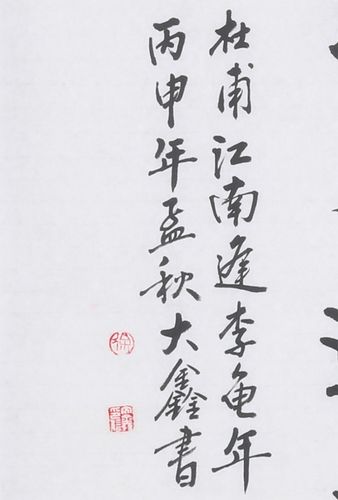 杜甫江南逢李龟年
丙申年孟秋大鑫書